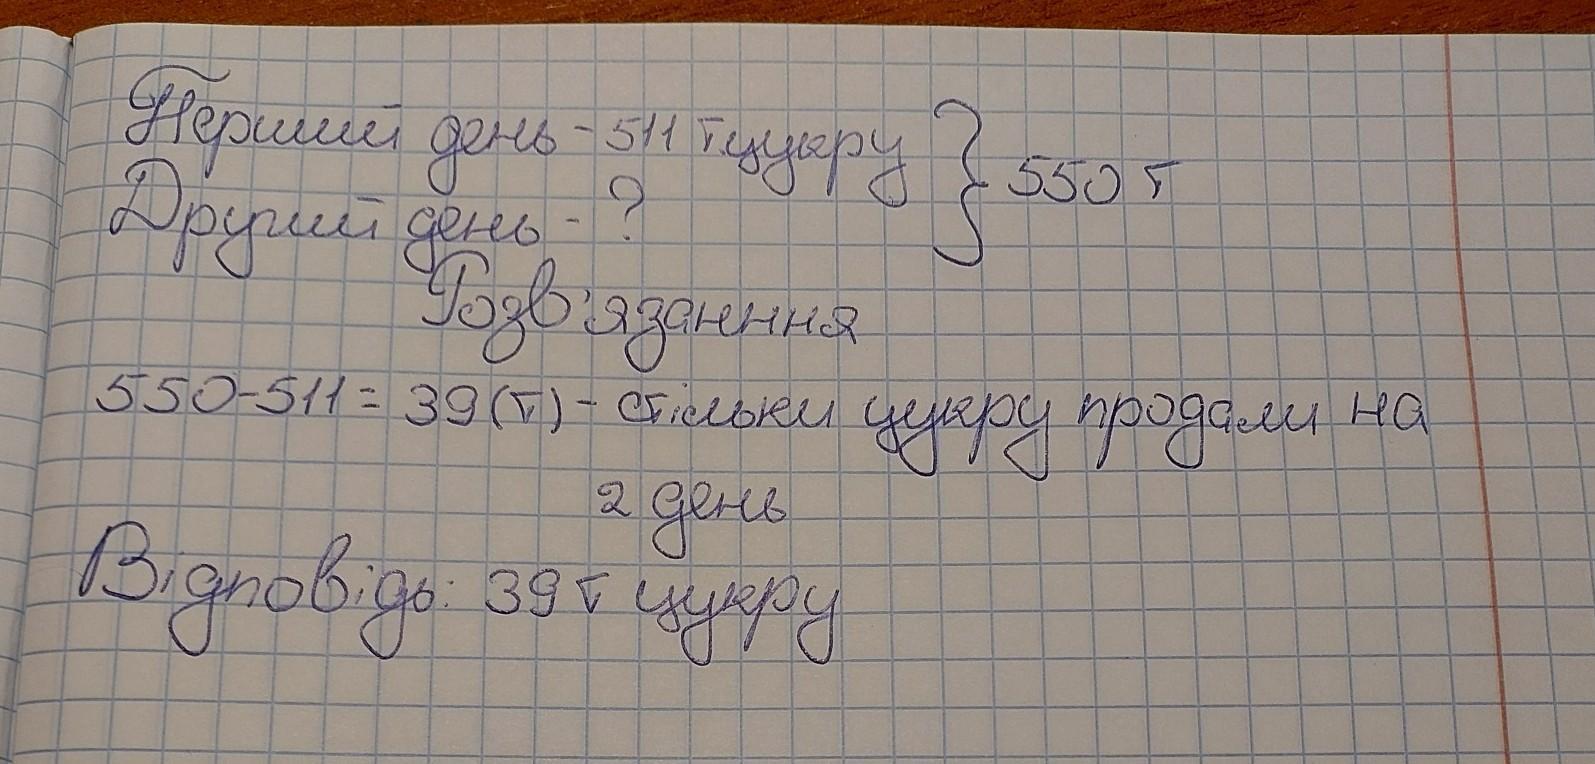 Перший день - 511 т цукру } 550 т
Другий день - ?
Розв'язанння
550-511 = 39 (т) - стільки цукру продали на
2 день
Відповідь: 39 т цукру